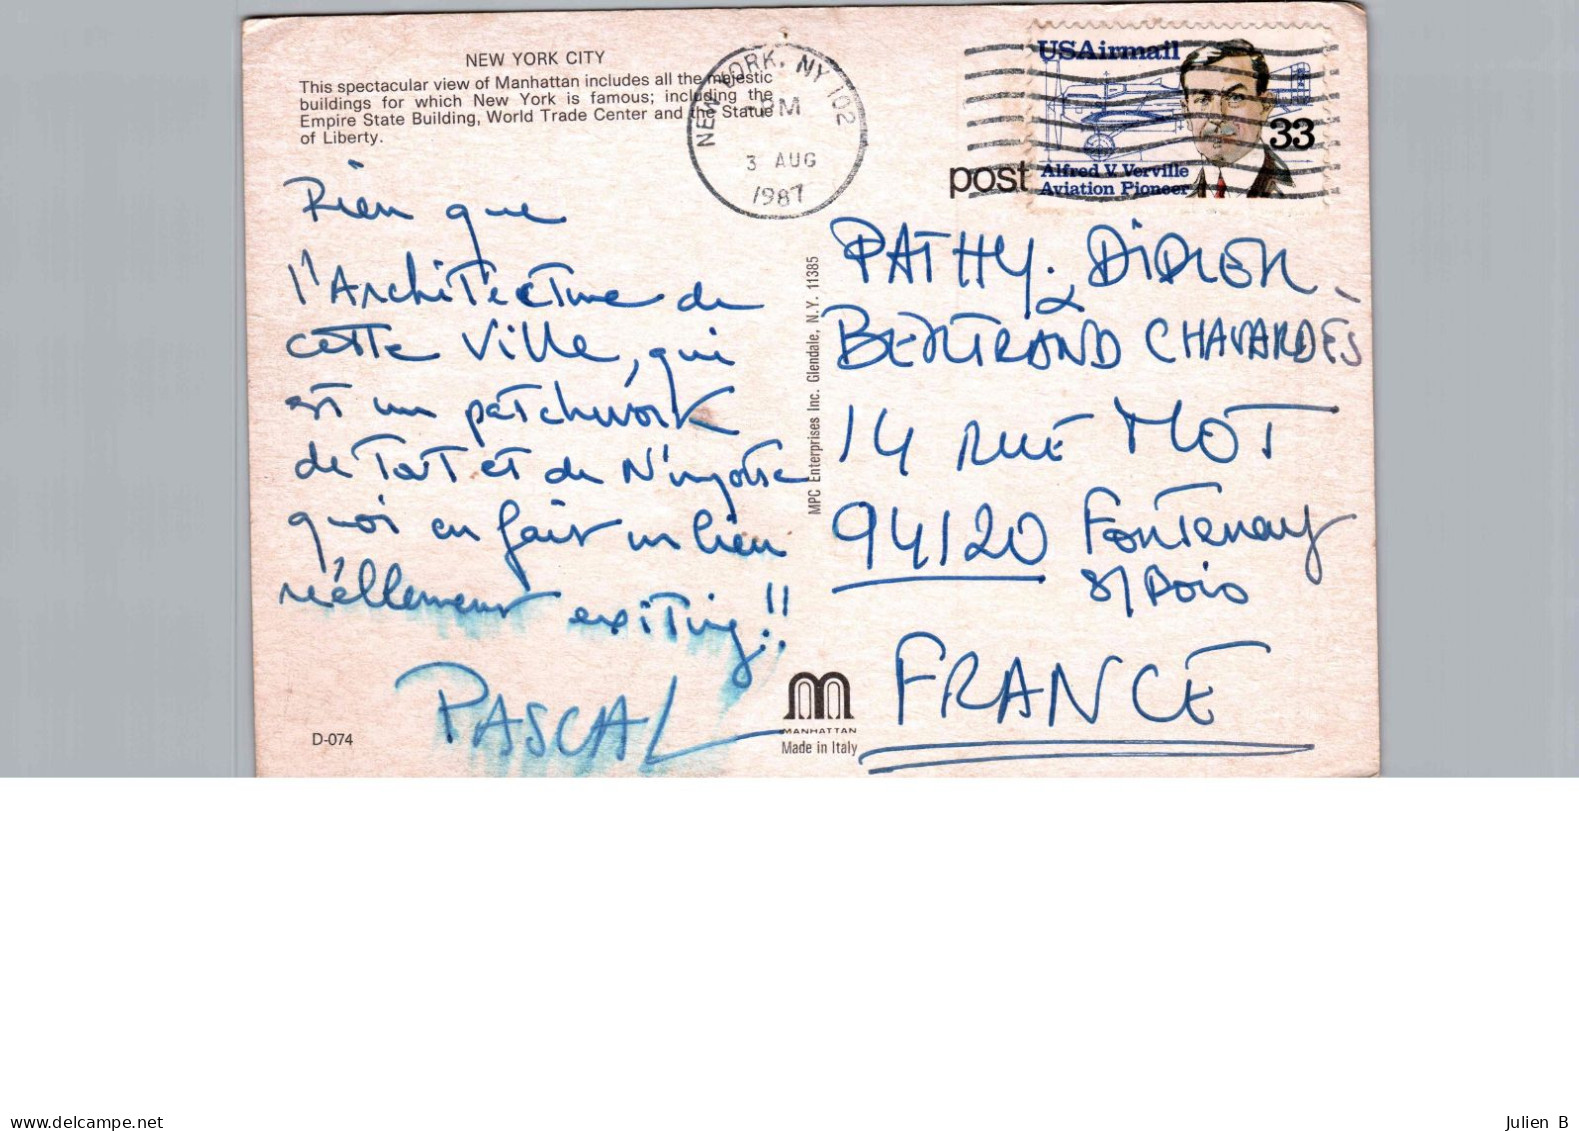 NEW YORK CITY
This spectacular view of Manhattan includes all the majestic
buildings for which New York is famous; including the
Empire State Building, World Trade Center and the Statue
of Liberty.
NEW YORK, NY 102
PM
3 AUG
1987
USAirmail
33
Alfred V. Verville
Aviation Pioneer
post
Rien que
l'Architecture de
cette Ville, qui
est un patchwork
de Tout et de N'importe
quoi en fait un lieu
réellement exiting!!
PASCAL
MPC Enterprises Inc. Glendale, N.Y. 11385
PATHY. DIDIER
& BERTRAND CHAVARDÈS
14 RUE MOT
94120 Fontenay
s/Bois
FRANCE
D-074
MANHATTAN
Made in Italy
www.delcampe.net
Julien B